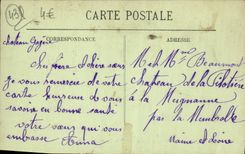 431
4€
CARTE POSTALE
CORRESPONDANCE
ADRESSE
Château
Chère
je vous remercie de votre
carte heureuse de vous
savoir en bonne santé
votre qui vous
embrasse Anna
M. et Mme Beaumont
Château de la Pilotière
à la Meignanne
par la Membrolle
Maine et Loire